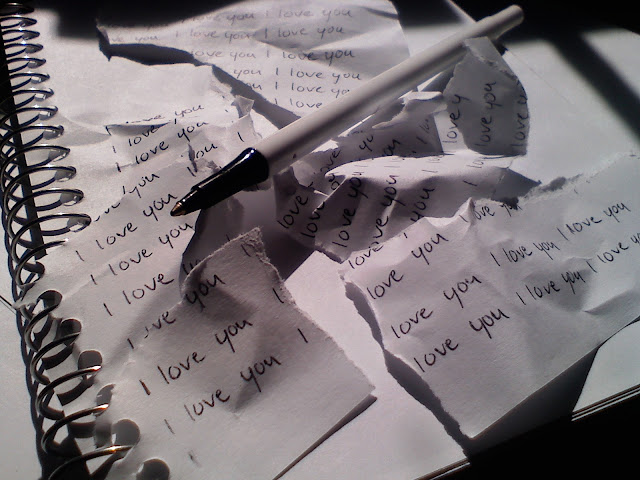 I love you I love you
I love you I love you
I love you I love you
you I love you
I love you
I love you
I love you
I love you
you I
love you
I love you I
I love you
I love
love you
I love you I
I love you I
love you
love
love you
love you
love you
love you
love you I love you I love you
love you I love you I love